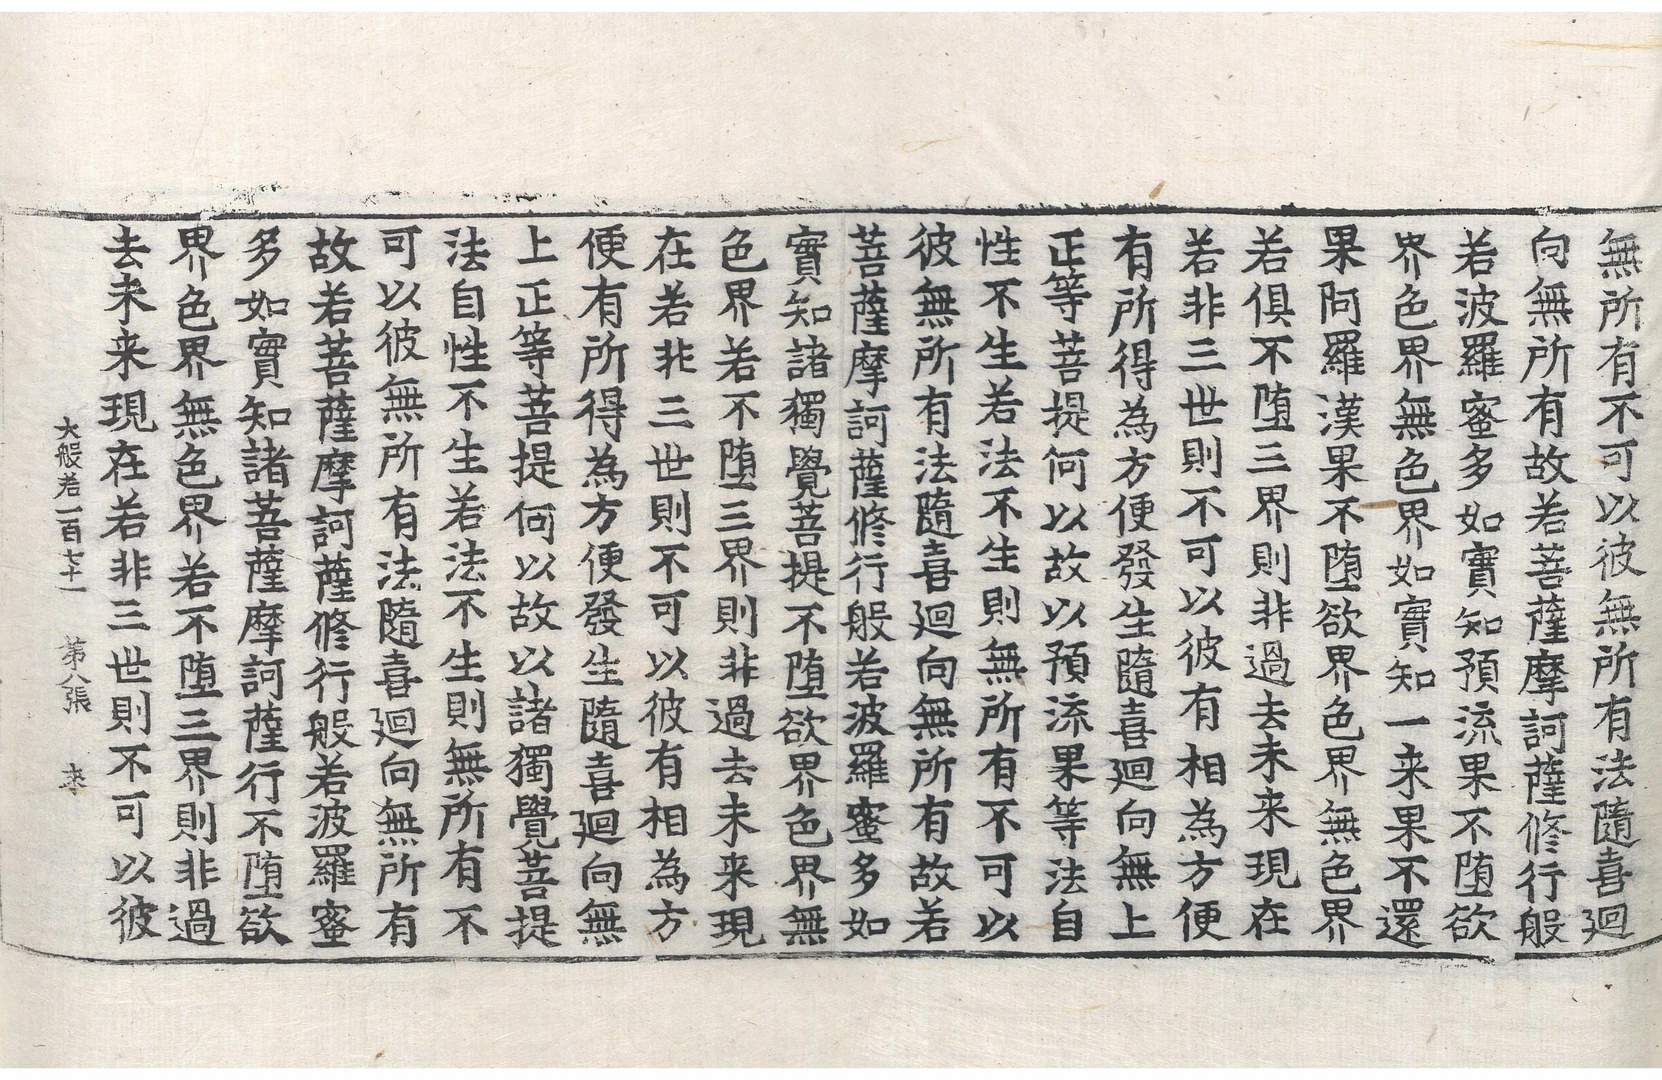 無所有不可以彼無所有法隨喜迴
向無所有故若菩薩摩訶薩修行般
若波羅蜜多如實知預流果不堕欲
界色界無色界如實知一来果不還
果阿羅漢果不堕欲界色界無色界
若俱不堕三界則非過去未来現在
若非三世則不可以彼有相為方便
有所得為方便發生隨喜迴向無上
正等菩提何以故以預流果等法自
性不生若法不生則無所有不可以
彼無所有法隨喜迴向無所有故若
菩薩摩訶薩修行般若波羅蜜多如
實知諸獨覺菩提不堕欲界色界無
色界若不堕三界則非過去未来現
在若非三世則不可以彼有相為方
便有所得為方便發生隨喜迴向無
上正等菩提何以故以諸獨覺菩提
法自性不生若法不生則無所有不
可以彼無所有法隨喜迴向無所有
故若菩薩摩訶薩修行般若波羅蜜
多如實知諸菩薩摩訶薩行不堕欲
界色界無色界若不堕三界則非過
去未来現在若非三世則不可以彼
大般若一百七十一 第八張